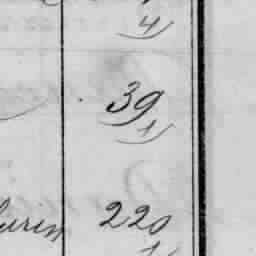 4
39
1
urin 220
1